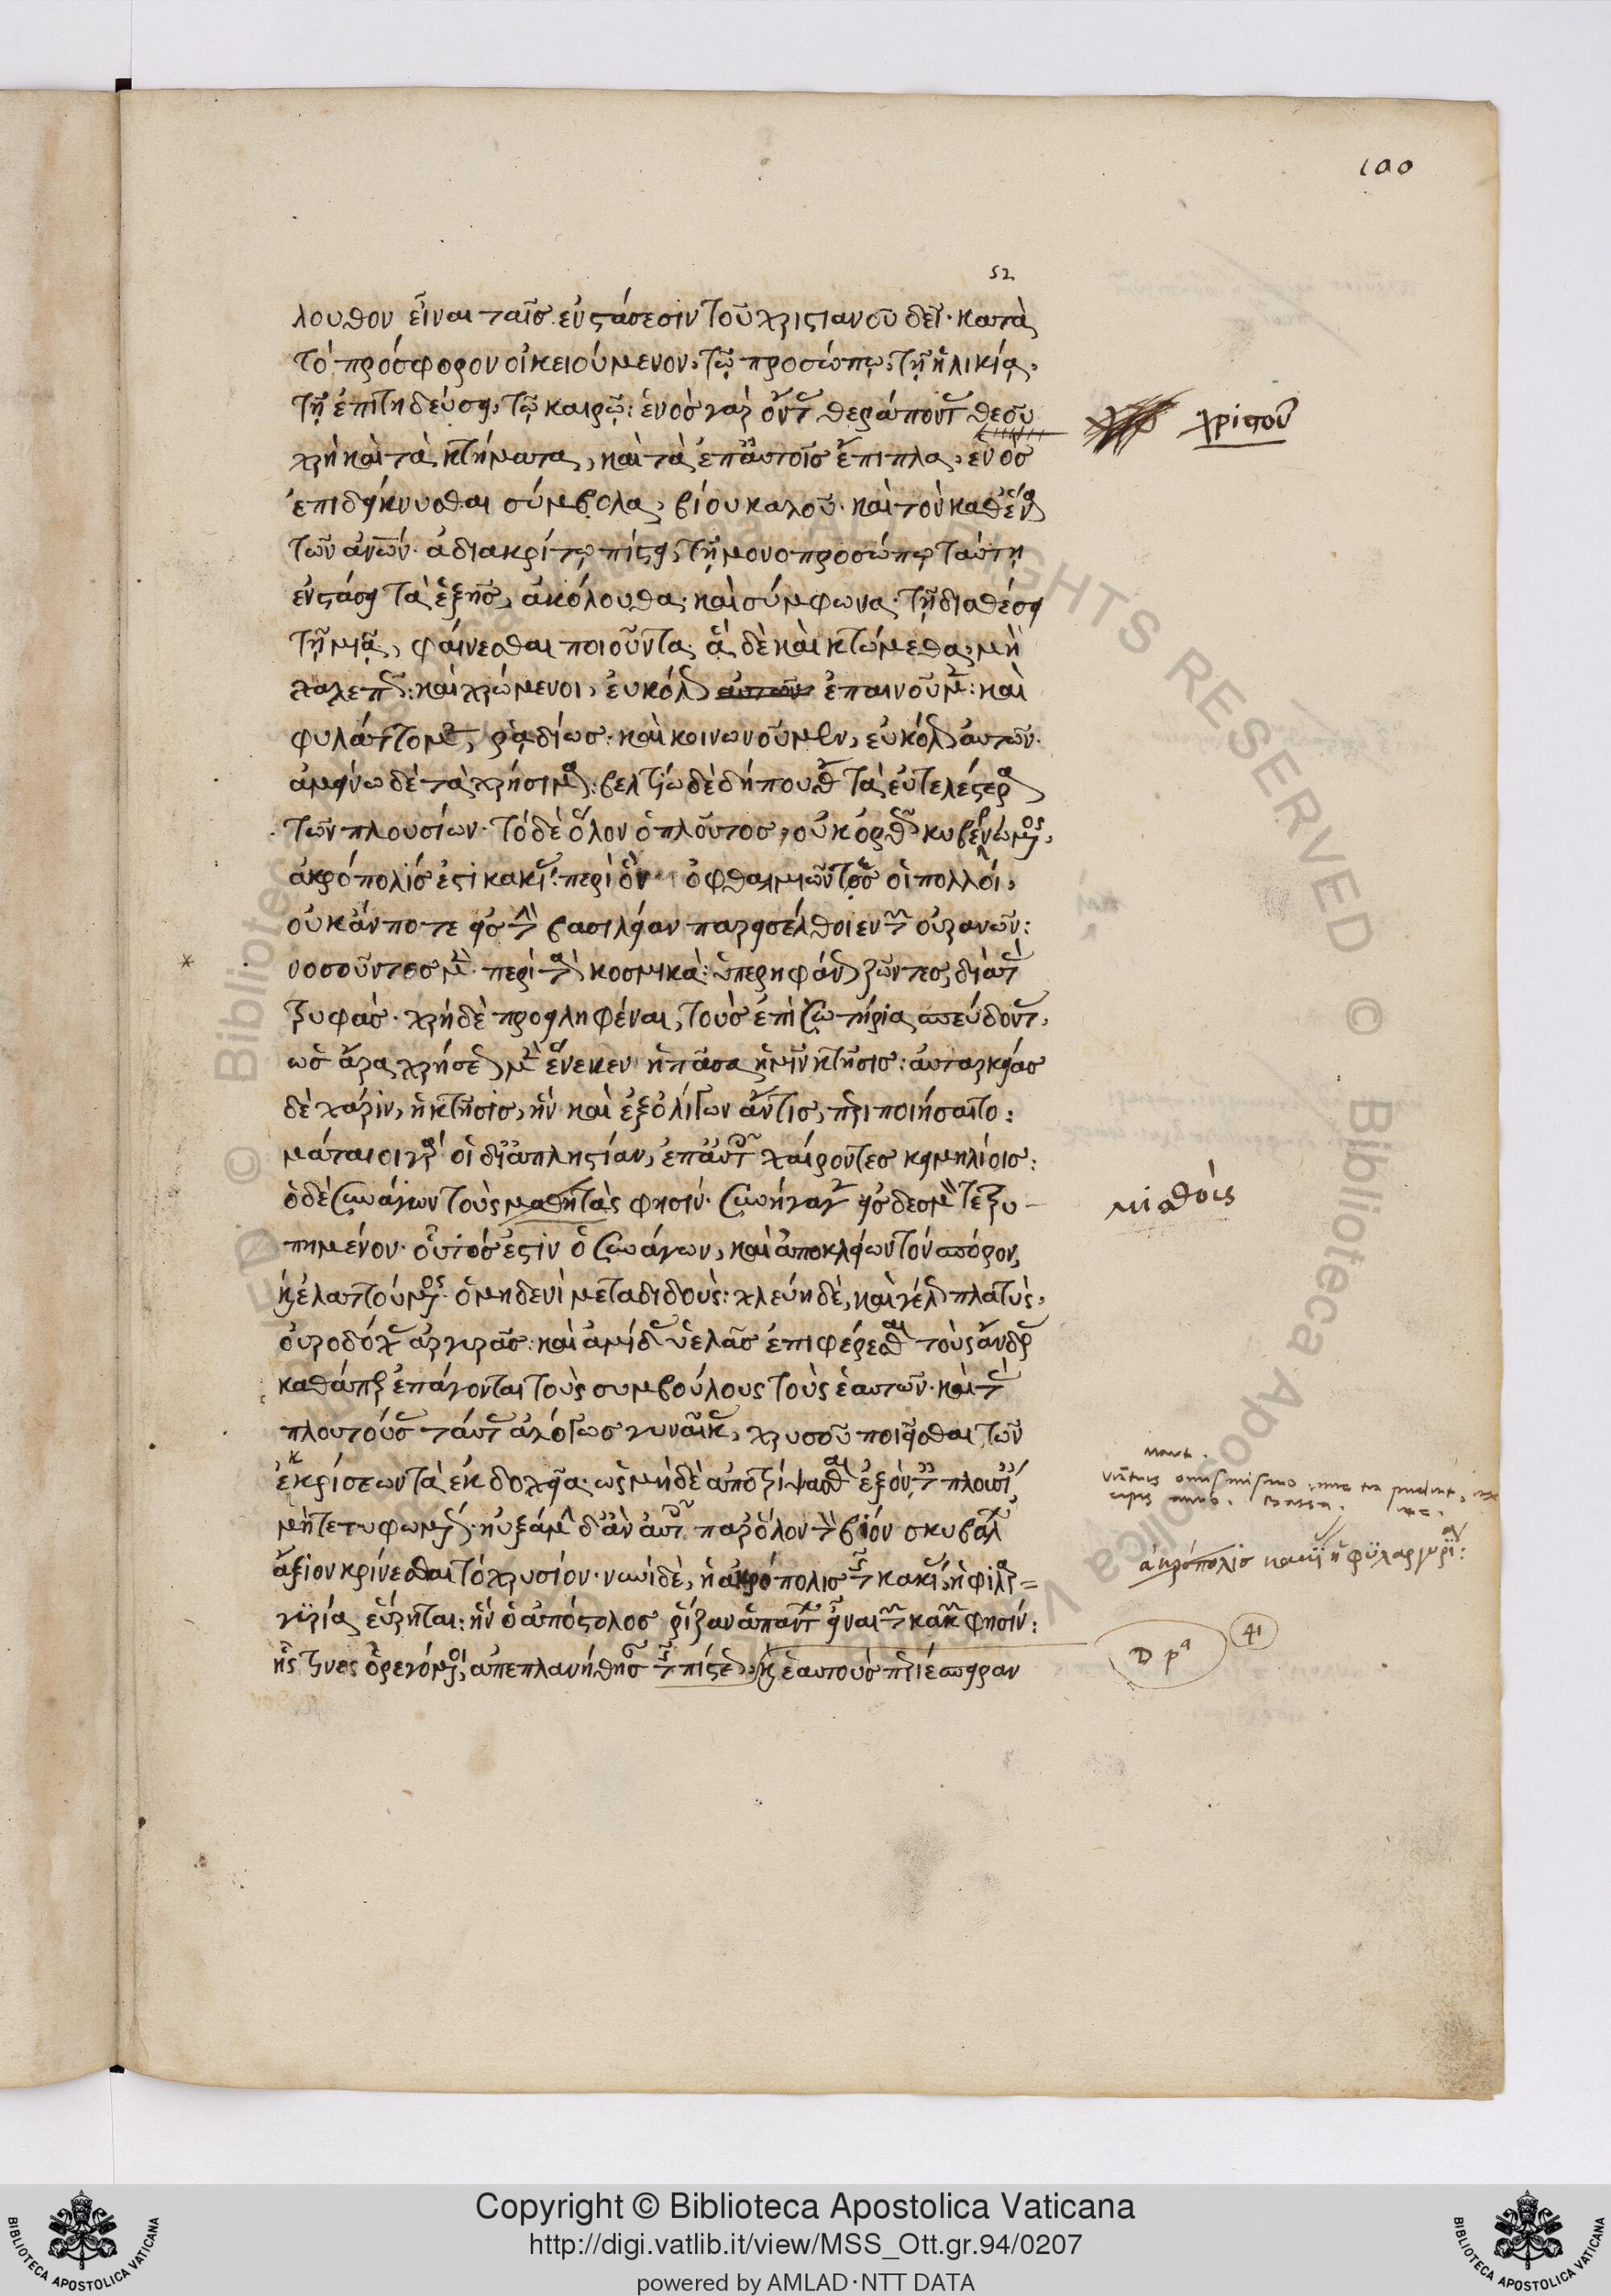 100
52
λουθον εἶναι ταῖσ ἐνστάσεσιν τοῦ χριστιανοῦ δεῖ· κατὰ
τὸ πρόσφορον οἰκειούμενον, τῷ προσώπῳ, τῇ ἡλικίᾳ,
τῇ ἐπιτηδεύσει, τῷ καιρῷ: ἑνὸσ γὰρ ὄντ θεράποντ θεοῦ
χριστοῦ
χρὴ καὶ τὰ κτήματα, καὶ τὰ ἐπαυτοῖσ ἔπιπλα, ἑνὸσ
ἐπιδείκνυσθαι σύμβολα, βίου καλοῦ· καὶ τὸν καθένα
τῶν ἀνῶν· ἀδιακρίτῳ πίστει, τῇ μονοπροσώπῳ ταύτῃ
ἐνστάσει τὰ ἑξῆσ, ἀκόλουθα· καὶ σύμφωνα· τῇ διαθέσει
τῇ μιᾷ, φαίνεσθαι ποιοῦντα· ἃ δὲ καὶ κτώμεθα, μὴ
χαλεπῶσ: καὶ χρώμενοι, εὐκόλωσ αὐτῶν ἐπαινοῦμεν: καὶ
φυλάττομεν, ῥᾳδίωσ· καὶ κοινωνοῦμεν, εὐκόλωσ αὐτῶν·
ἀμείνω δὲ τὰ χρήσιμα: βελτίω δὲ δήπουθ τὰ εὐτελέστερα
τῶν πλουσίων· τὸ δὲ ὅλον ὁ πλοῦτοσ, οὐκ ὀρθῶσ κυβερνώμενος,
ἀκρόπολίσ ἐστι κακίασ: περὶ ὃν ὀφθαλμιῶντεσ οἱ πολλοί,
οὐκ ἄν ποτε εἰσ τὴν βασιλείαν παρεισέλθοιεν τῶν οὐρανῶν:
* νοσοῦντεσ μὲν περὶ τὰ κοσμικὰ: ὑπερηφάνωσ ζῶντεσ, διὰ τὰσ
τρυφάσ· χρὴ δὲ προειληφέναι, τοὺσ ἐπὶ σωτηρίᾳ σπεύδοντ,
ὡσ ἄρα χρήσεωσ μὲν ἕνεκεν ἡ πᾶσα ἡμῖν κτῆσισ: αὐταρκείασ
δὲ χάριν, ἡ κτῆσισ, ἣν καὶ ἐξ ὀλίγων ἄν τισ, περιποιήσαιτο:
μάταιοι γὰρ οἱ δι ἀπληστίαν, ἐπ αὐτοῖσ χαίροντεσ κειμηλίοισ:
ὁ δὲ συνάγων τοὺς μαθητὰς φησίν· συνήγαγεν εἰσ δεσμὸν τετρυ-
μισθοὺς
πημένον· οὗτόσ ἐστιν ὁ συνάγων, καὶ ἀποκλείων τὸν σπόρον,
καὶ ἐλαττούμενος· ὁ μηδενὶ μεταδιδοὺς: χλεύη δὲ, καὶ γέλωσ πλατὺς,
οὐροδόχασ ἀργυρᾶσ: καὶ ἀμίδασ ὑελᾶσ ἐπιφέρεσθαι τοὺς ἄνδρασ
καθάπερ ἐπάγονται τοὺς συμβούλους τοὺς ἑαυτῶν· καὶ τὰσ
πλουτούσασ ταύτασ ἀλόγωσ γυναῖκασ, χρυσοῦ ποιεῖσθαι τῶν
ἐκκρίσεων τὰ ἐκδοχεῖα· ὡς μὴ δὲ ἀποτρίψασθαι ἐξὸν τῶν πλουσί
μὴ τετυφωμένωσ· ηὐξάμην δ ἂν αὐτ παρ ὅλον τὸν βίον σκυβάλ
ἄξιον κρίνεσθαι τὸ χρυσίον· νυνὶ δὲ, ἡ ἀκρόπολισ τῆσ κακίασ, ἡ φιλαρ=
γυρία εὕρηται: ἣν ὁ ἀπόστολοσ ῥίζαν ἁπάντ εἶναι τῶν κακῶν φησίν:
ἀκρόπολισ κακϊ ἡ φϋλαργυρϊα:
ἧς τινες ὀρεγόμενοι, ἀπεπλανήθησ τῆσ πίστεωσ, καὶ ἑαυτοὺσ περιέπειραν
D pa 41
Copyright © Biblioteca Apostolica Vaticana
http://digi.vatlib.it/view/MSS_Ott.gr.94/0207
powered by AMLAD·NTT DATA
BIBLIOTECA APOSTOLICA VATICANA
BIBLIOTECA APOSTOLICA VATICANA